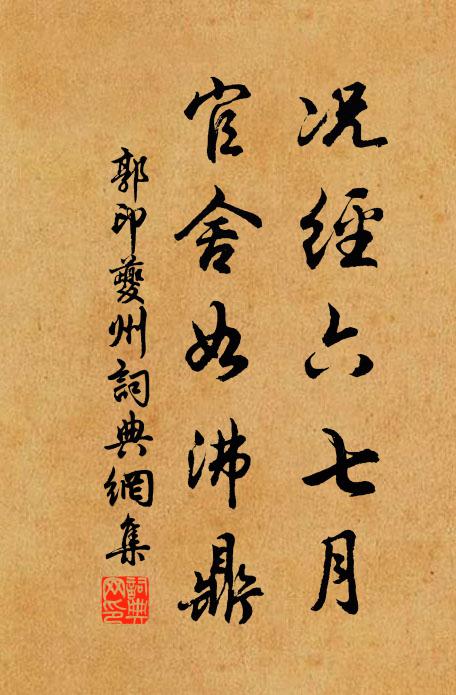 况經六七月
官舍如沸鼎
郭印夔州詞典網集
詞典網印